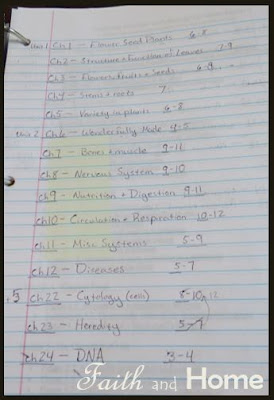 Unit 1 Ch1 - Flower Seed Plants 6-8
Ch2 - Structure + Function of Leaves 7-9
Ch3 - Flowers, fruits + Seeds
Ch4 - Stems + roots 7
Ch5 - Variety in plants 6-8
Unit 2 Ch6 - Wonderfully Made
Ch7 - Bones + muscle 9-11
Ch8 - Nervous System 9-10
Ch9 - Nutrition + Digestion 9-11
Ch10 - Circulation + Respiration 10-12
Ch11 - Misc Systems 5-9
Ch12 - Diseases 5-7
5 Ch22 - Cytology (cells)
Ch23 - Heredity
Ch24 - DNA 3-4
Faith and Home